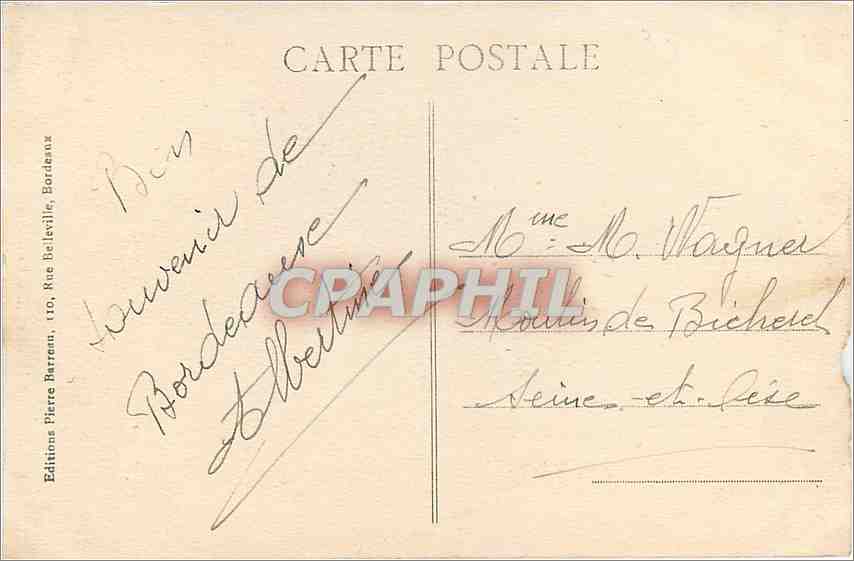 CARTE POSTALE
Editions Pierre Barreau, 110, Rue Belleville, Bordeaux
Bon
Souvenir de
Bordeaux
Albertine
CPARPHIL
Mme M. Wagner
Moulin de Bicherel
Seine-et-Oise